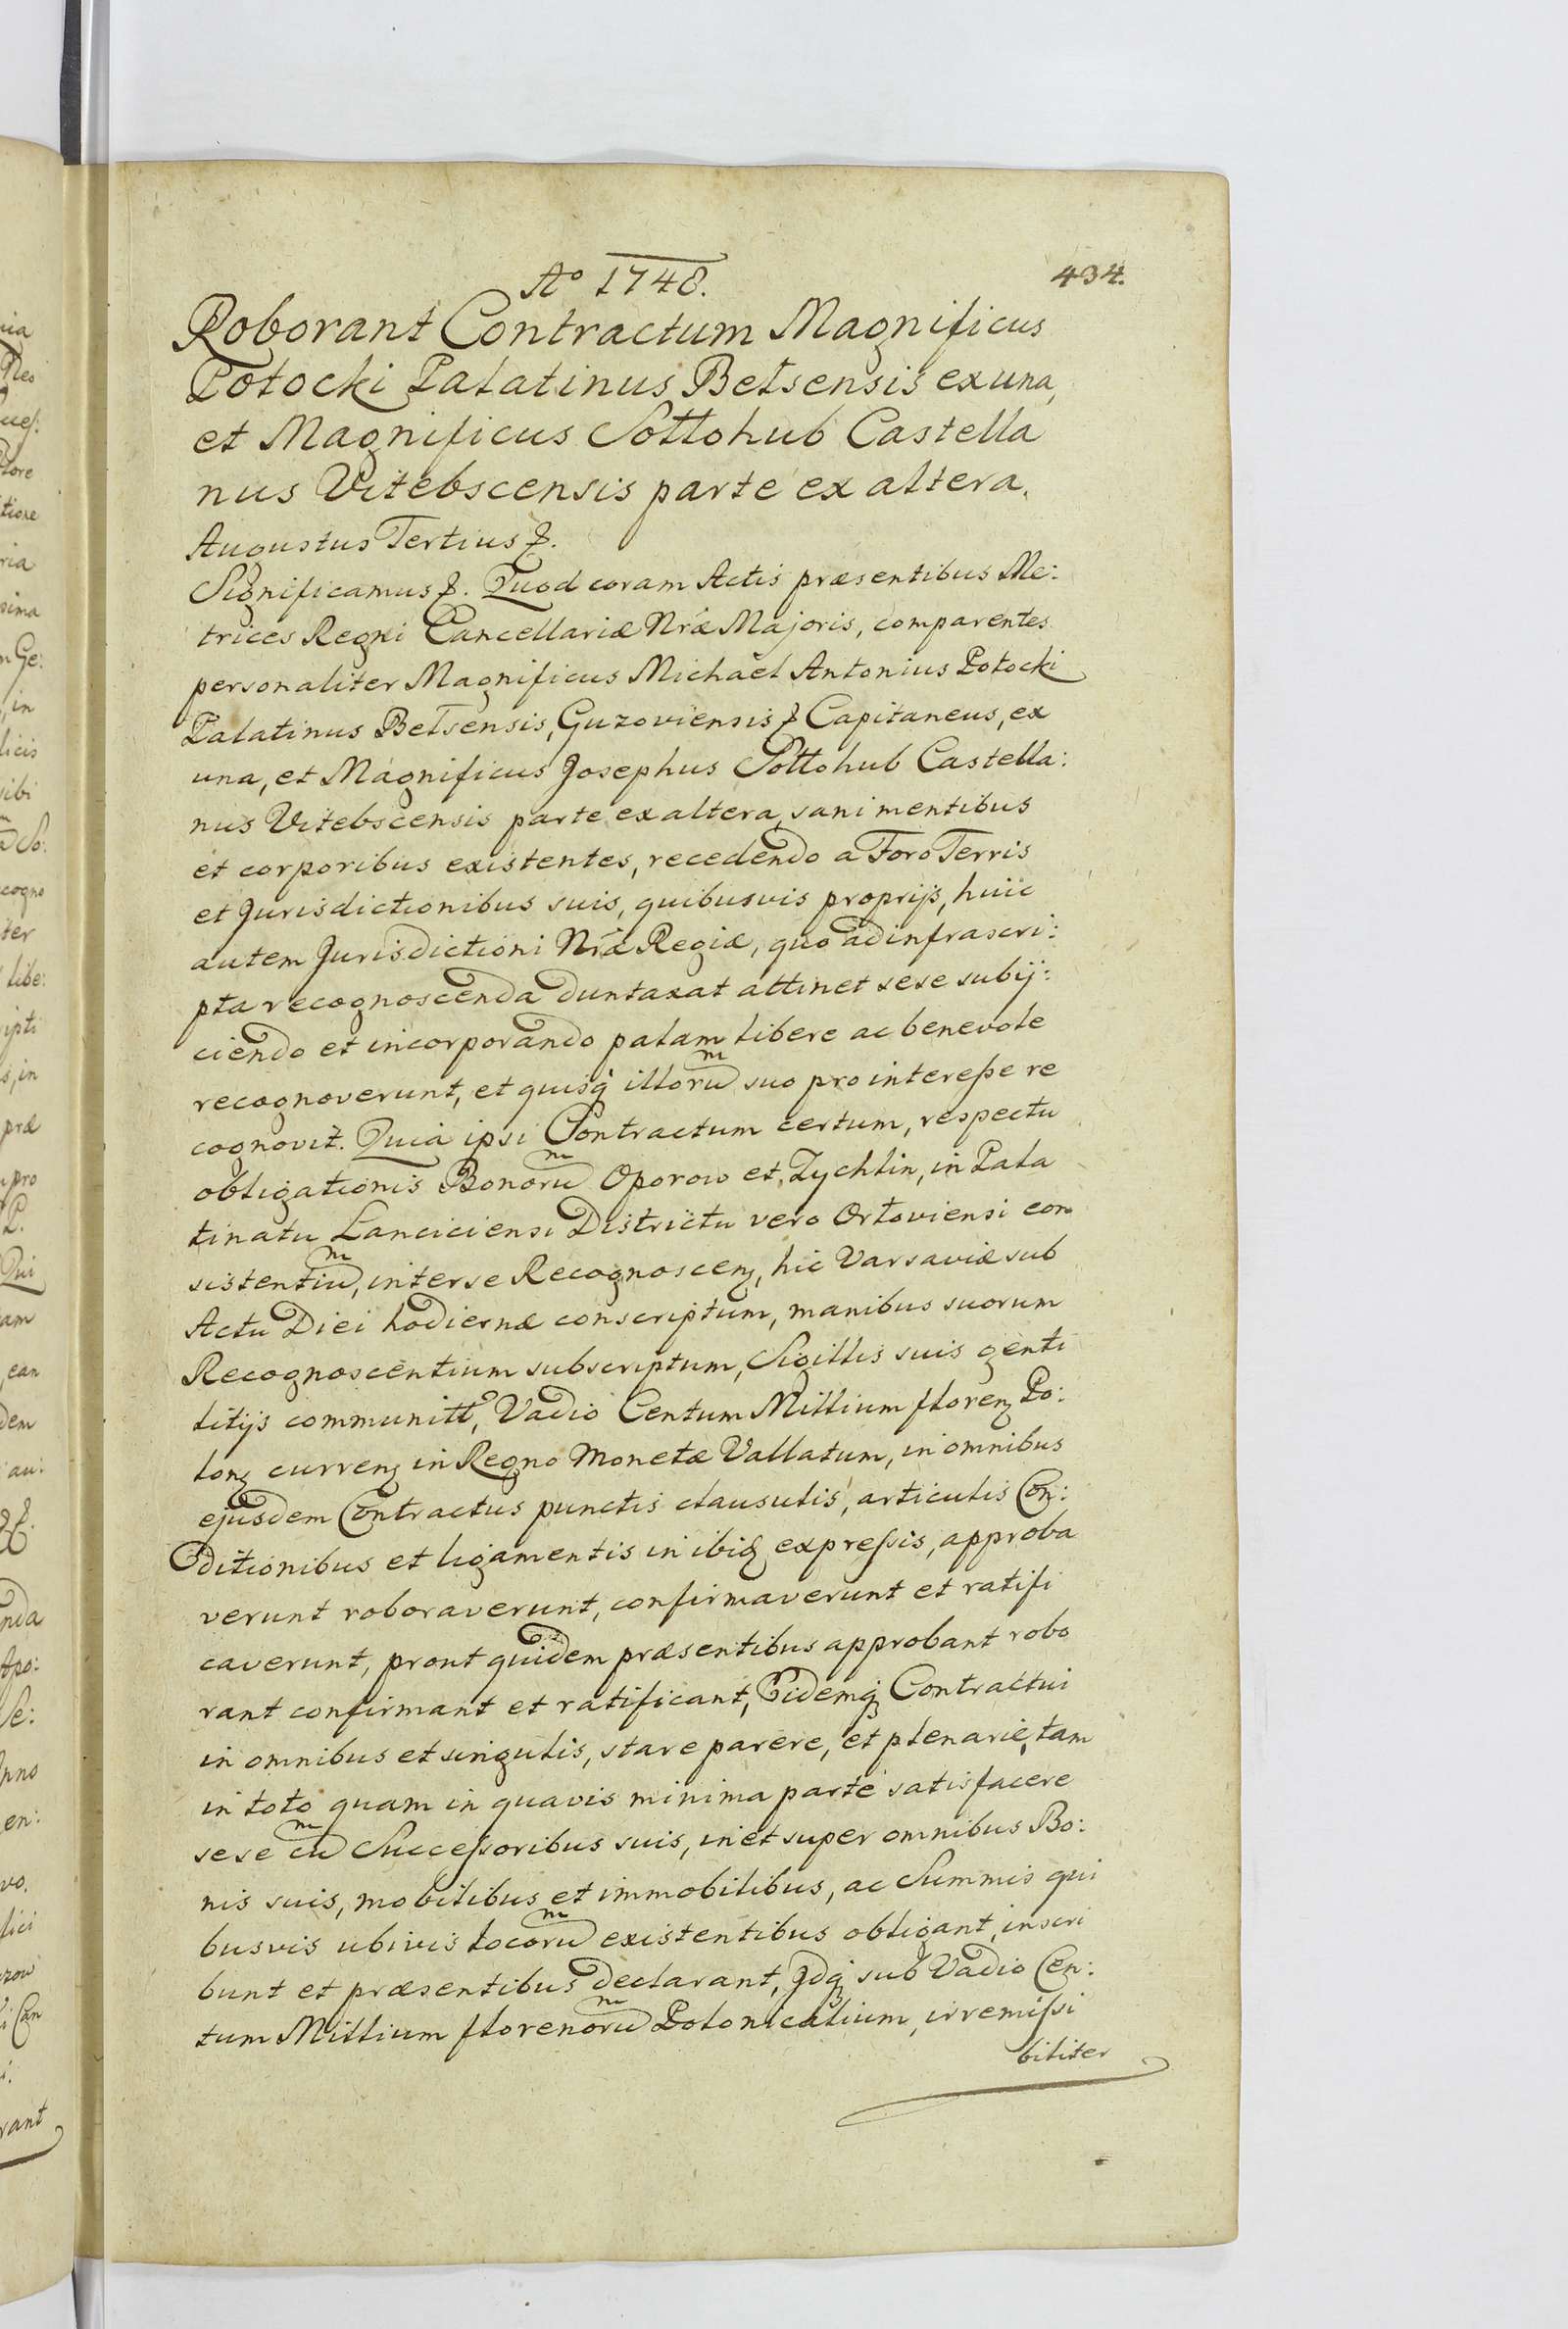 Aº 1748.
434.
Roborant Contractum Magnificus
Potocki Palatinus Belsensis ex una,
et Magnificus Sołłohub Castella
nus Vitebscensis parte ex altera.
Augustus Tertius &.
Significamus &. Quod coram Actis præsentibus Me:
trices Regni Cancellariæ Nræ Majoris, comparentes
personaliter Magnificus Michaël Antonius Potocki
Palatinus Belsensis, Guzoviensis & Capitaneus, ex
una, et Magnificus Josephus Sołłohub Castella:
nus Vitebscensis parte ex altera, sani mentibus
et corporibus existentes, recedendo a Foro Terris
et Jurisdictionibus suis, quibusvis proprijs, huic
autem Jurisdictioni Nræ Regiæ, quo ad infrascri:
pta recognoscenda duntaxat attinet sese subij:
ciendo et incorporando palam libere ac benevole
recognoverunt, et quisq illorum suo pro interesse re
cognovit. Quia ipsi Contractum certum, respectu
obligationis Bonorum Oporow et Zychlin, in Pala
tinatu Lanciciensi Districtu vero Orłoviensi con
sistentium, inter se Recognoscen, hic Varsaviæ sub
Actu Diei hodiernæ conscriptum, manibus suorum
Recognoscentium subscriptum, Sigillis suis genti
litijs communitt, Vadio Centum Millium floren Po:
lon curren in Regno Monetæ Vallatum, in omnibus
ejusdem Contractus punctis clausulis, articulis Con:
ditionibus et ligamentis in ibid expressis, approba
verunt roboraverunt, confirmaverunt et ratifi
caverunt, prout quidem præsentibus approbant robo
rant confirmant et ratificant, Eidemq Contractui
in omnibus et singulis, stare parere, et plenarie, tam
in toto quam in quavis minima parte satisfacere
sese cum Successoribus suis, in et super omnibus Bo:
nis suis, mobilibus et immobilibus, ac Summis qui
busvis ubivis locorum existentibus obligant, inscri
bunt et præsentibus declarant, Jdq sub Vadio Cen:
tum Millium florenorum Polonicalium, irremissi
biliter